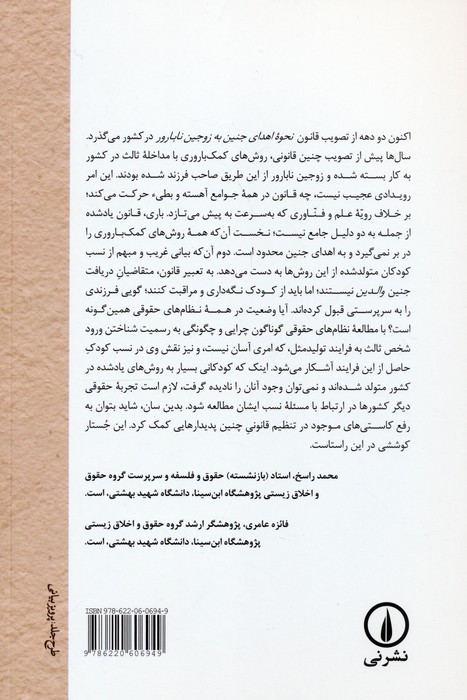 اکنون دو دهه از تصویب قانون نحوهٔ اهدای جنین به زوجین نابارور در کشور می‌گذرد.
سال‌ها پیش از تصویب چنین قانونی، روش‌های کمک‌باروری با مداخلهٔ ثالث در کشور
به کار بسته شده و زوجین نابارور از این طریق صاحب فرزند شده بودند. این امر
رویدادی عجیب نیست، چه قانون در همهٔ جوامع آهسته و بطیء حرکت می‌کند؛
بر خلاف رویّهٔ علم و فنّاوری که به‌سرعت به پیش می‌تازد. باری، قانون یادشده
از جمله به دو دلیل جامع نیست؛ نخست آن‌که همهٔ روش‌های کمک‌باروری را
در بر نمی‌گیرد و به اهدای جنین محدود است. دوم آن‌که بیانی غریب و مبهم از نسب
کودکان متولدشده از این روش‌ها به دست می‌دهد. به تعبیر قانون، متقاضیان دریافت
جنین والدین نیستند؛ اما باید از کودک نگه‌داری و مراقبت کنند؛ گویی فرزندی
را به سرپرستی قبول کرده‌اند. آیا وضعیت در همهٔ نظام‌های حقوقی همین‌گونه
است؟ با مطالعهٔ نظام‌های حقوقی گوناگون چرایی و چگونگی به رسمیت شناختن ورود
شخص ثالث به فرایند تولیدمثل، که امری آسان نیست، و نیز نقش وی در نسب کودکِ
حاصل از این فرایند آشکار می‌شود. اینک که کودکانی بسیار به روش‌های یادشده در
کشور متولد شده‌اند و نمی‌توان وجود آنان را نادیده گرفت، لازم است تجربهٔ حقوقی
دیگر کشورها در ارتباط با مسئلهٔ نسب ایشان مطالعه شود. بدین سان، شاید بتوان به
رفع کاستی‌های موجود در تنظیم قانونیِ چنین پدیدارهایی کمک کرد. این جُستار
کوششی در این راستاست.
محمد راسخ، استاد (بازنشسته) حقوق و فلسفه و سرپرست گروه حقوق
و اخلاق زیستی پژوهشگاه ابن‌سینا، دانشگاه شهید بهشتی، است.
فائزه عامری، پژوهشگر ارشد گروه حقوق و اخلاق زیستی
پژوهشگاه ابن‌سینا، دانشگاه شهید بهشتی، است.
طرح جلد: پرویز بیانی
ISBN 978-622-06-0694-9
9 786220 606949
نشرنی